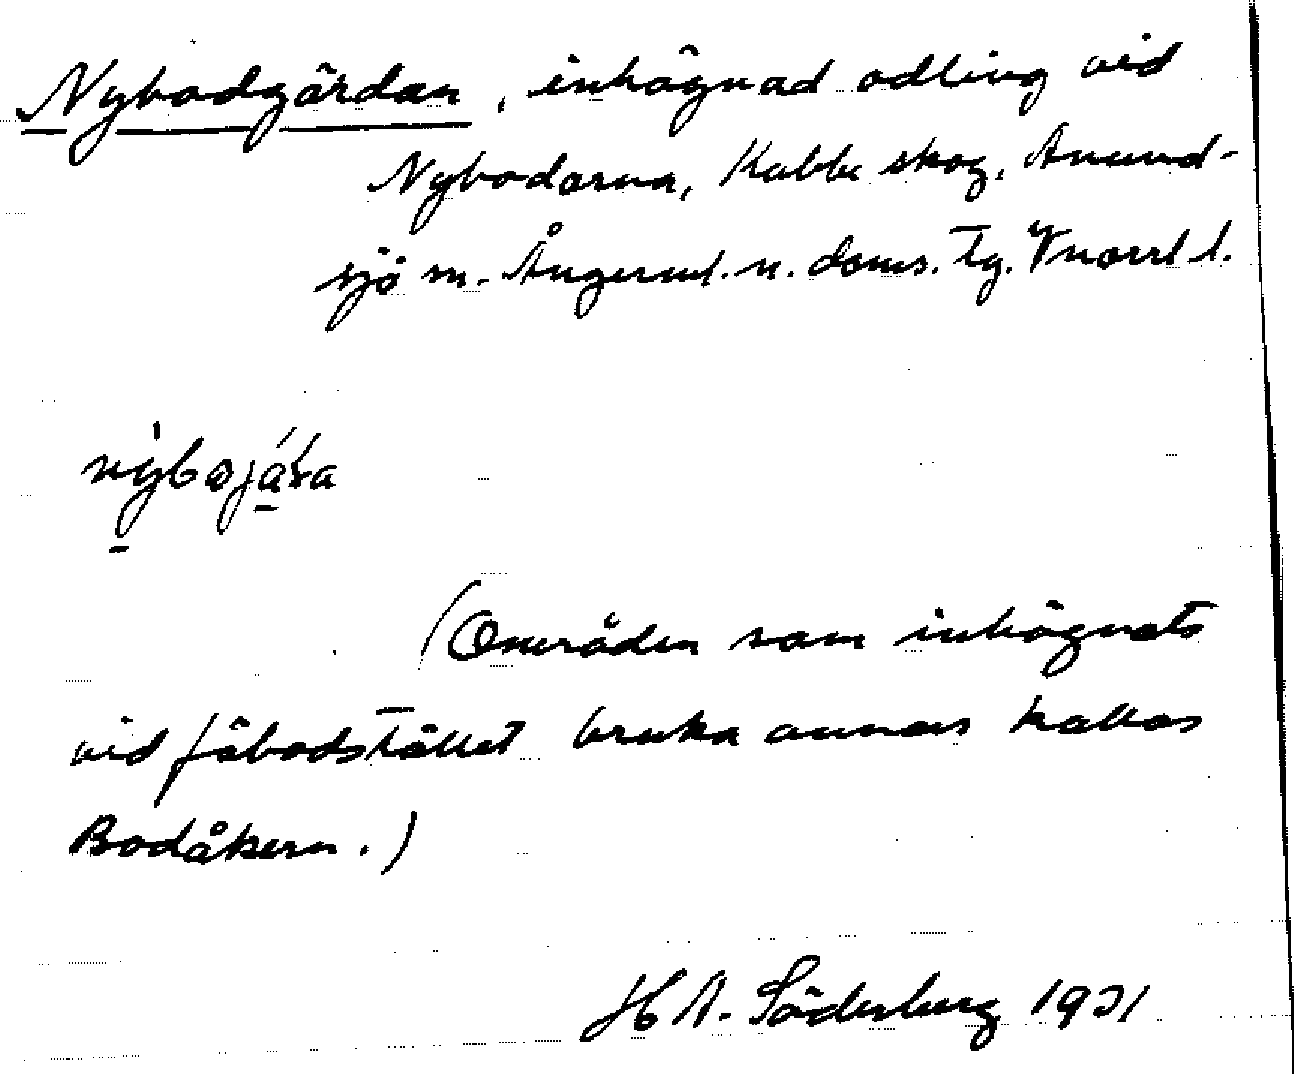 Nybodgärdan, inhägnad odling vid
Nybodarna, Kubbe skog, Anund-
sjö sn. Ångerml. n. doms. tg. Vnorrl l.
(Områden som inhägnats
vid fäbodstället bruka annars kallas
Bodåkern.)
H A. Söderberg 1931